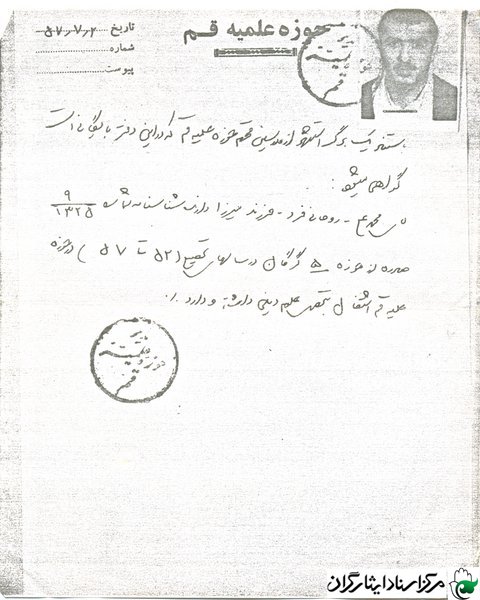 حوزه علمیه قم
تاریخ ۵۷٫۷٫۲
شماره
پیوست
مستند بیک برگ استشهاد از مدرسین محترم حوزه علمیه قم که در این دفتر بایگانی است
گواهی میشود:
محمد روحانی فرد - فرزند میرزا دارنده شناسنامه شماره ۹/۱۳۲۵
صادره از حوزه ۵ گرگان در سالهای تحصیلی (۵۲ تا ۵۷) در حوزه
علمیه قم اشتغال بتحصیل علوم دینی داشته و دارد.
مدیریت حوزه علمیه قم
مرکز اسناد ایثارگران